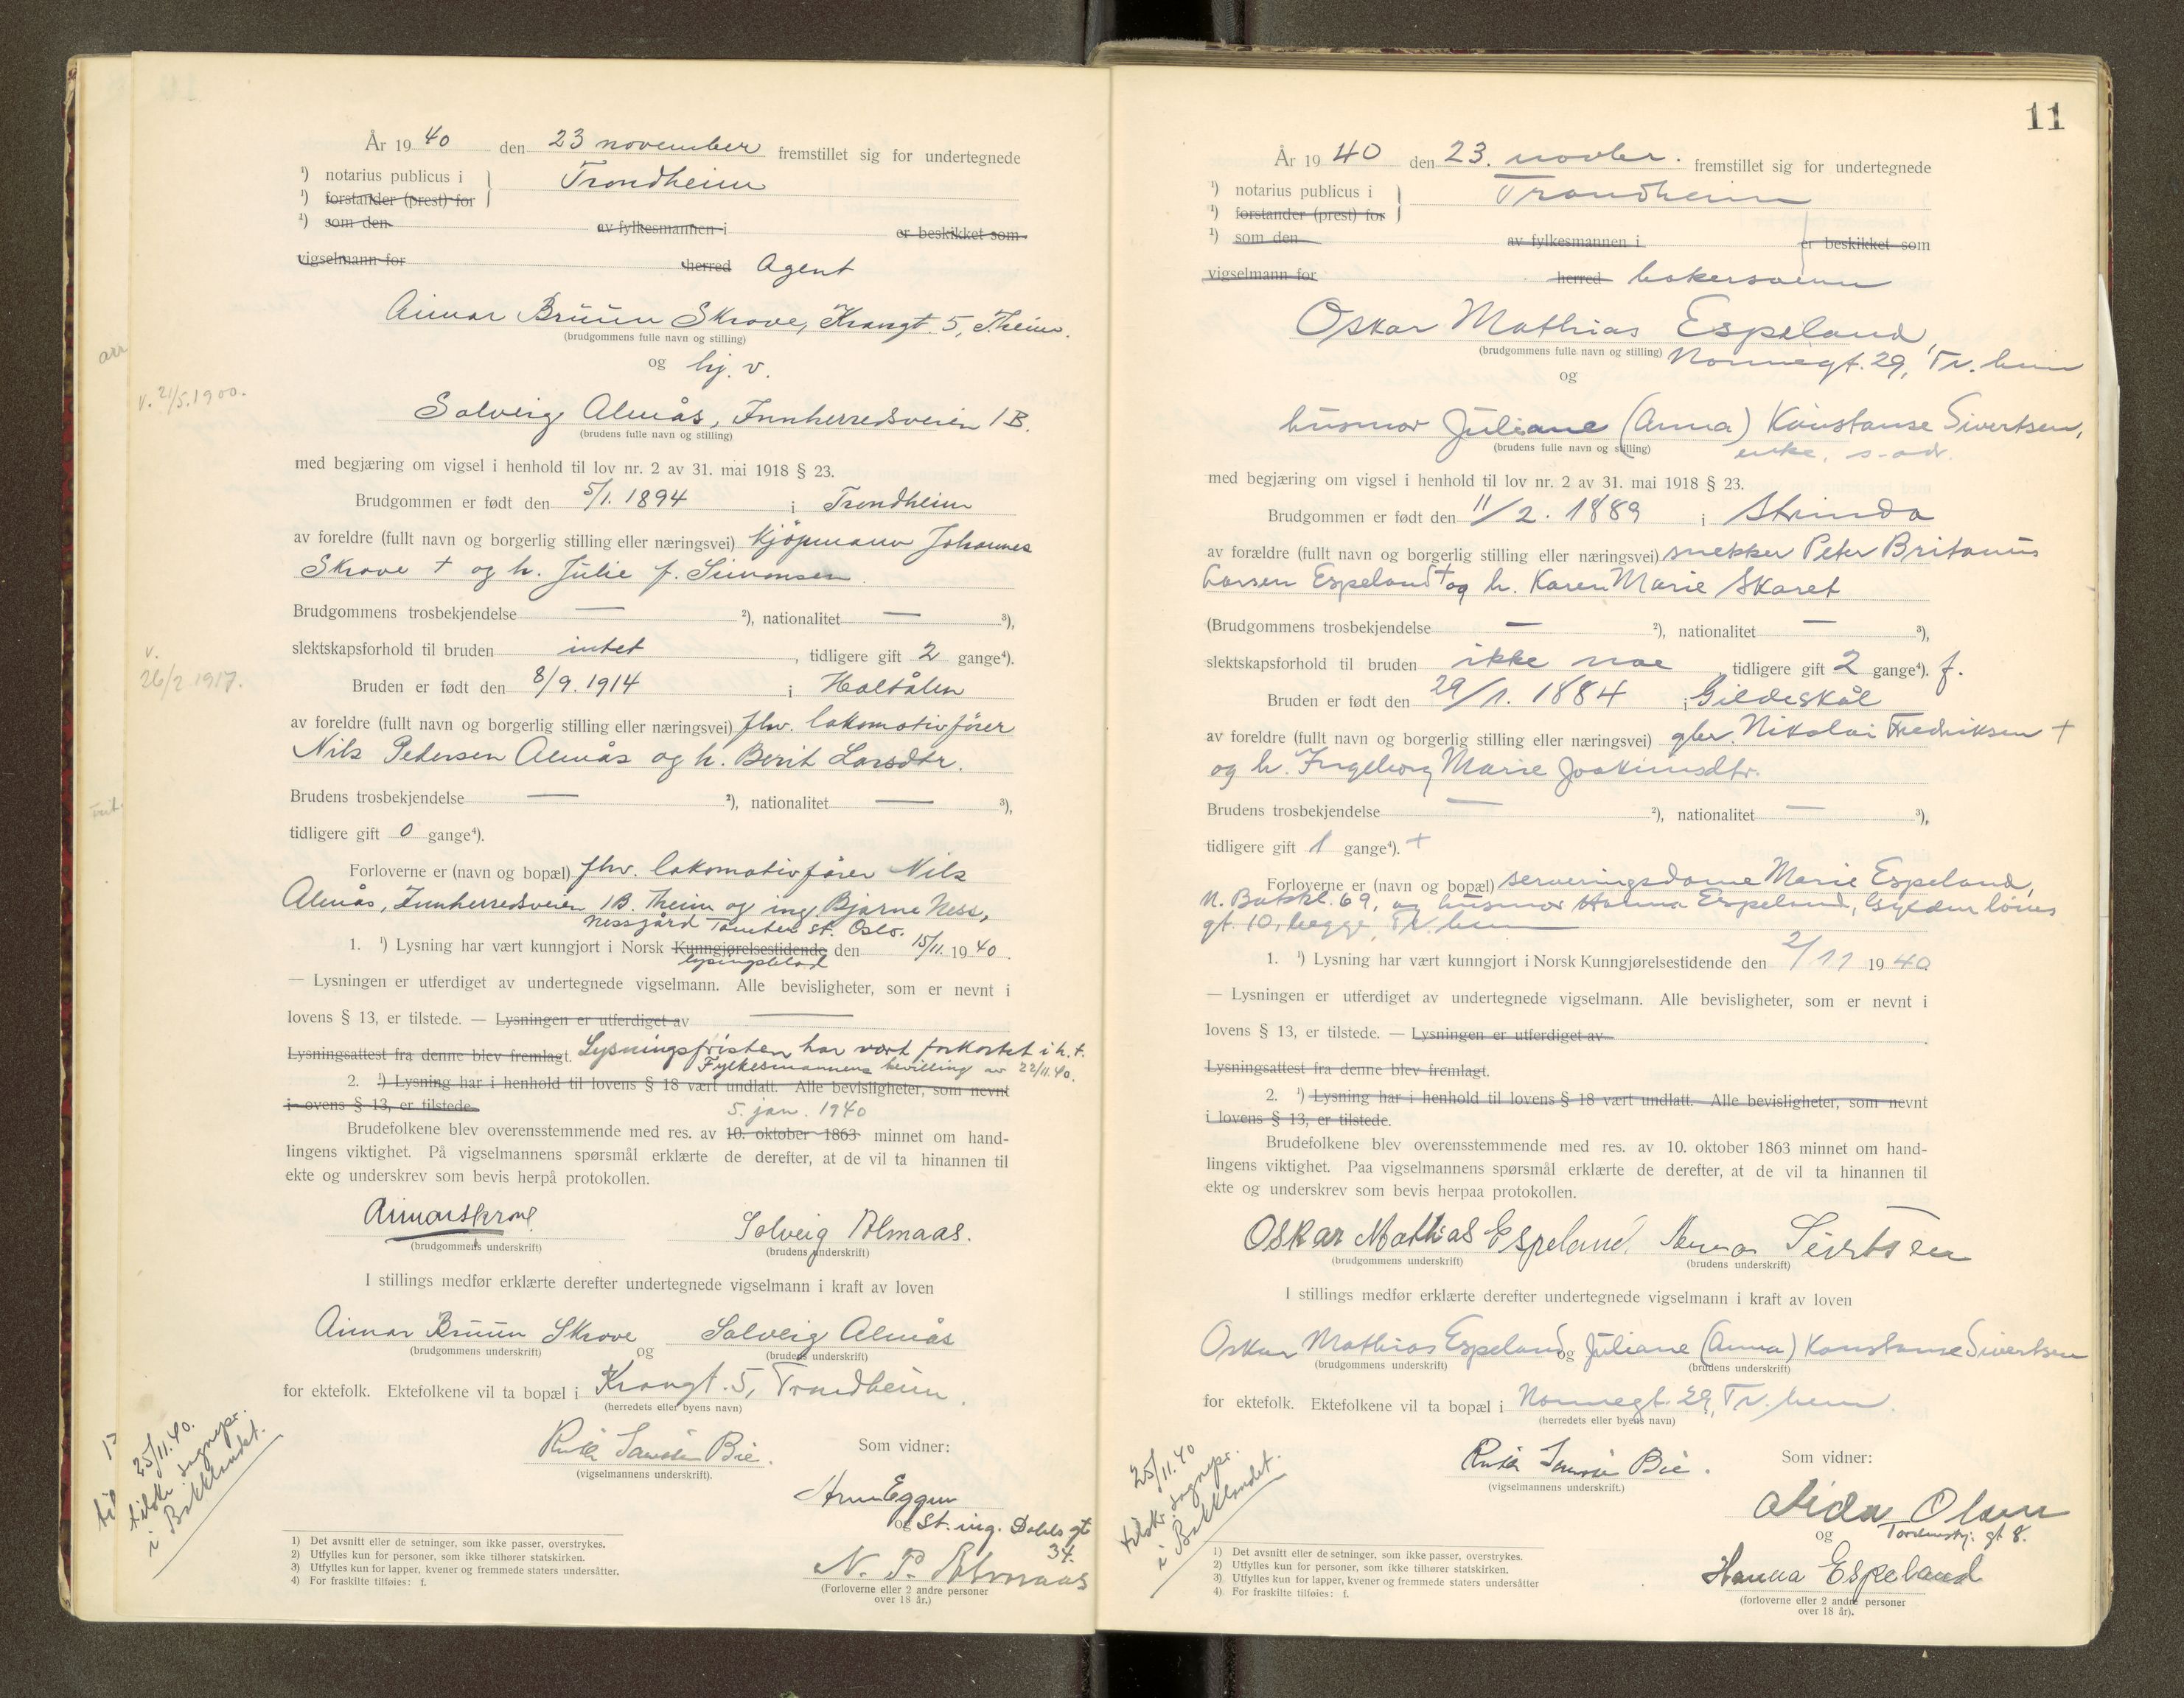 År 1940 den 23 november fremstillet sig for undertegnede
¹) notarius publicus i } Trondheim
¹) forstander (prest) for
¹) som den av fylkesmannen i er beskikket som
vigselmann for herred Agent
Aimar Bruun Skrove, Krangt. 5, T.heim.
(brudgommens fulle navn og stilling)
og hj. v.
Solveig Almås, Innherredsveien 1B.
(brudens fulle navn og stilling)
med begjæring om vigsel i henhold til lov nr. 2 av 31. mai 1918 § 23.
Brudgommen er født den 5/1. 1894 i Trondheim
av foreldre (fullt navn og borgerlig stilling eller næringsvei) Kjøpmann Johannes
Skrove + og h. Julie f. Simonsen.
Brudgommens trosbekjendelse — ²), nationalitet — ³),
slektskapsforhold til bruden intet, tidligere gift 2 gange⁴).
Bruden er født den 8/9. 1914 i Haltålen
av foreldre (fullt navn og borgerlig stilling eller næringsvei) fhv. lokomotivfører
Nils Pedersen Almås og h. Berit Larsdtr.
Brudens trosbekjendelse — ²), nationalitet — ³),
tidligere gift 0 gange⁴).
Forloverne er (navn og bopæl) fhv. lokomotivfører Nils
Almås, Innherredsveien 1B. Theim og ing. Bjarne Ness,
Nessgård Tomter st. Oslo.
1. ¹) Lysning har vært kunngjort i Norsk Kunngjørelsestidende den 15/11. 1940.
lysingsblad
— Lysningen er utferdiget av undertegnede vigselmann. Alle bevisligheter, som er nevnt i
lovens § 13, er tilstede. — Lysningen er utferdiget av —
Lysningsattest fra denne blev fremlagt. Lysningsfristen har vært forkortet i h. t.
Fylkesmannens bevilling av 22/11.40.
2. ¹) Lysning har i henhold til lovens § 18 vært undlatt. Alle bevisligheter, som nevnt
i ovens § 13, er tilstede.
5. jan. 1940
Brudefolkene blev overensstemmende med res. av 10. oktober 1863 minnet om hand-
lingens viktighet. På vigselmannens spørsmål erklærte de derefter, at de vil ta hinannen til
ekte og underskrev som bevis herpå protokollen.
Aimar Skrove Solveig Almaas.
(brudgommens underskrift) (brudens underskrift)
I stillings medfør erklærte derefter undertegnede vigselmann i kraft av loven
Aimar Bruun Skrove og Solveig Almås
(brudgommens underskrift) (brudens underskrift)
for ektefolk. Ektefolkene vil ta bopæl i Krangt. 5, Trondheim.
(herredets eller byens navn)
Bie.
(vigselmannens underskrift).
Som vidner:
Eggen
og St. ing. Dahls gt
34.
N. P. Almaas
(Forloverne eller 2 andre personer
over 18 år.)
1) Det avsnitt eller de setninger, som ikke passer, overstrykes.
2) Utfylles kun for personer, som ikke tilhører statskirken.
3) Utfylles kun for lapper, kvener og fremmede staters undersåtter.
4) For fraskilte tilføies: f.
v. 21/5.1900.
v.
26/2 1917.
25/11.40.
tilskr. sognepr.
i Bakklandet.
11
År 1940 den 23. novbr. fremstillet sig for undertegnede
¹) notarius publicus i } Trondheim
¹) forstander (prest) for
¹) som den av fylkesmannen i er beskikket som
vigselmann for herred bakersvenn
Oskar Mathias Espeland,
(brudgommens fulle navn og stilling) Nonnegt. 29, Tr.heim
og
husmor Juliane (Anna) Konstanse Sivertsen,
(brudens fulle navn og stilling) enke, s. adr.
med begjæring om vigsel i henhold til lov nr. 2 av 31. mai 1918 § 23.
Brudgommen er født den 11/2. 1889 i Strinda
av forældre (fullt navn og borgerlig stilling eller næringsvei) snekker Peter Britanus
Larsen Espeland + og h. Karen Marie Skaret
(Brudgommens trosbekjendelse — ²), nationalitet — ³),
slektskapsforhold til bruden ikke noe tidligere gift 2 gange⁴). f.
Bruden er født den 29/1. 1884 i Gildeskål
av foreldre (fullt navn og borgerlig stilling eller næringsvei) gbr. Nikolai Fredriksen +
og h. Ingeborg Marie Joakimsdtr.
Brudens trosbekjendelse — ²), nationalitet — ³),
tidligere gift 1 gange⁴). +
Forloverne er (navn og bopæl) serveringsdame Marie Espeland,
N. Bakkl. 69, og husmor Hanna Espeland, Gyldenløves
gt. 10, begge Tr.heim
1. ¹) Lysning har vært kunngjort i Norsk Kunngjørelsestidende den 2/11 1940
— Lysningen er utferdiget av undertegnede vigselmann. Alle bevisligheter, som er nevnt i
lovens § 13, er tilstede. — Lysningen er utferdiget av
Lysningsattest fra denne blev fremlagt.
2. ¹) Lysning har i henhold til lovens § 18 vært undlatt. Alle bevisligheter, som nevnt
i lovens § 13, er tilstede.
Brudefolkene blev overensstemmende med res. av 10. oktober 1863 minnet om hand-
lingens viktighet. Paa vigselmannens spørsmål erklærte de derefter, at de vil ta hinannen til
ekte og underskrev som bevis herpaa protokollen.
Oskar Mathias Espeland. Anna Sivertsen
(brudgommens underskrift) (brudens underskrift)
I stillings medfør erklærte derefter undertegnede vigselmann i kraft av loven
Oskar Mathias Espeland og Juliane (Anna) Konstanse Sivertsen
(brudgommens underskrift) (brudens underskrift)
for ektefolk. Ektefolkene vil ta bopæl i Nonnegt. 29, Tr.heim.
(herredets eller byens navn)
Bie.
(vigselmannens underskrift.)
Som vidner:
Aida Olsen
og Tordenskj. gt 8.
Hanna Espeland
(forloverne eller 2 andre personer
over 18 år).
1) Det avsnitt eller de setninger, som ikke passer, overstrykes.
2) Utfylles kun for personer, som ikke tilhører statskirken.
3) Utfylles kun for lapper, kvener og fremmede staters undersåtter
4) For fraskilte tilføies: f.
25/11.40
tilskr. sognepr.
i Bakklandet.